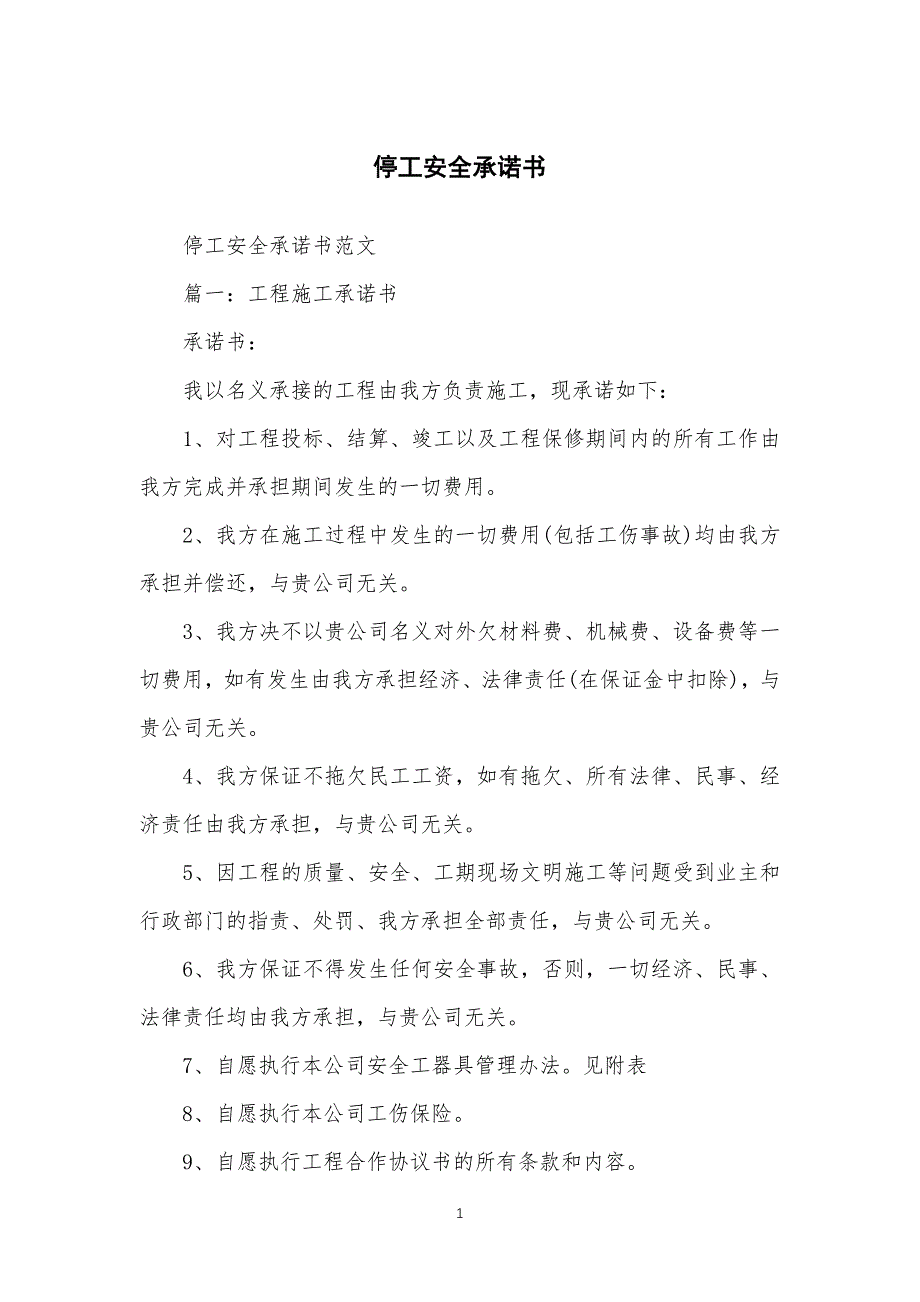 停工安全承诺书
停工安全承诺书范文
篇一：工程施工承诺书
承诺书：
我以名义承接的工程由我方负责施工，现承诺如下：
1、对工程投标、结算、竣工以及工程保修期间内的所有工作由
我方完成并承担期间发生的一切费用。
2、我方在施工过程中发生的一切费用(包括工伤事故)均由我方
承担并偿还，与贵公司无关。
3、我方决不以贵公司名义对外欠材料费、机械费、设备费等一
切费用，如有发生由我方承担经济、法律责任(在保证金中扣除)，与
贵公司无关。
4、我方保证不拖欠民工工资，如有拖欠、所有法律、民事、经
济责任由我方承担，与贵公司无关。
5、因工程的质量、安全、工期现场文明施工等问题受到业主和
行政部门的指责、处罚、我方承担全部责任，与贵公司无关。
6、我方保证不得发生任何安全事故，否则，一切经济、民事、
法律责任均由我方承担，与贵公司无关。
7、自愿执行本公司安全工器具管理办法。见附表
8、自愿执行本公司工伤保险。
9、自愿执行工程合作协议书的所有条款和内容。
1